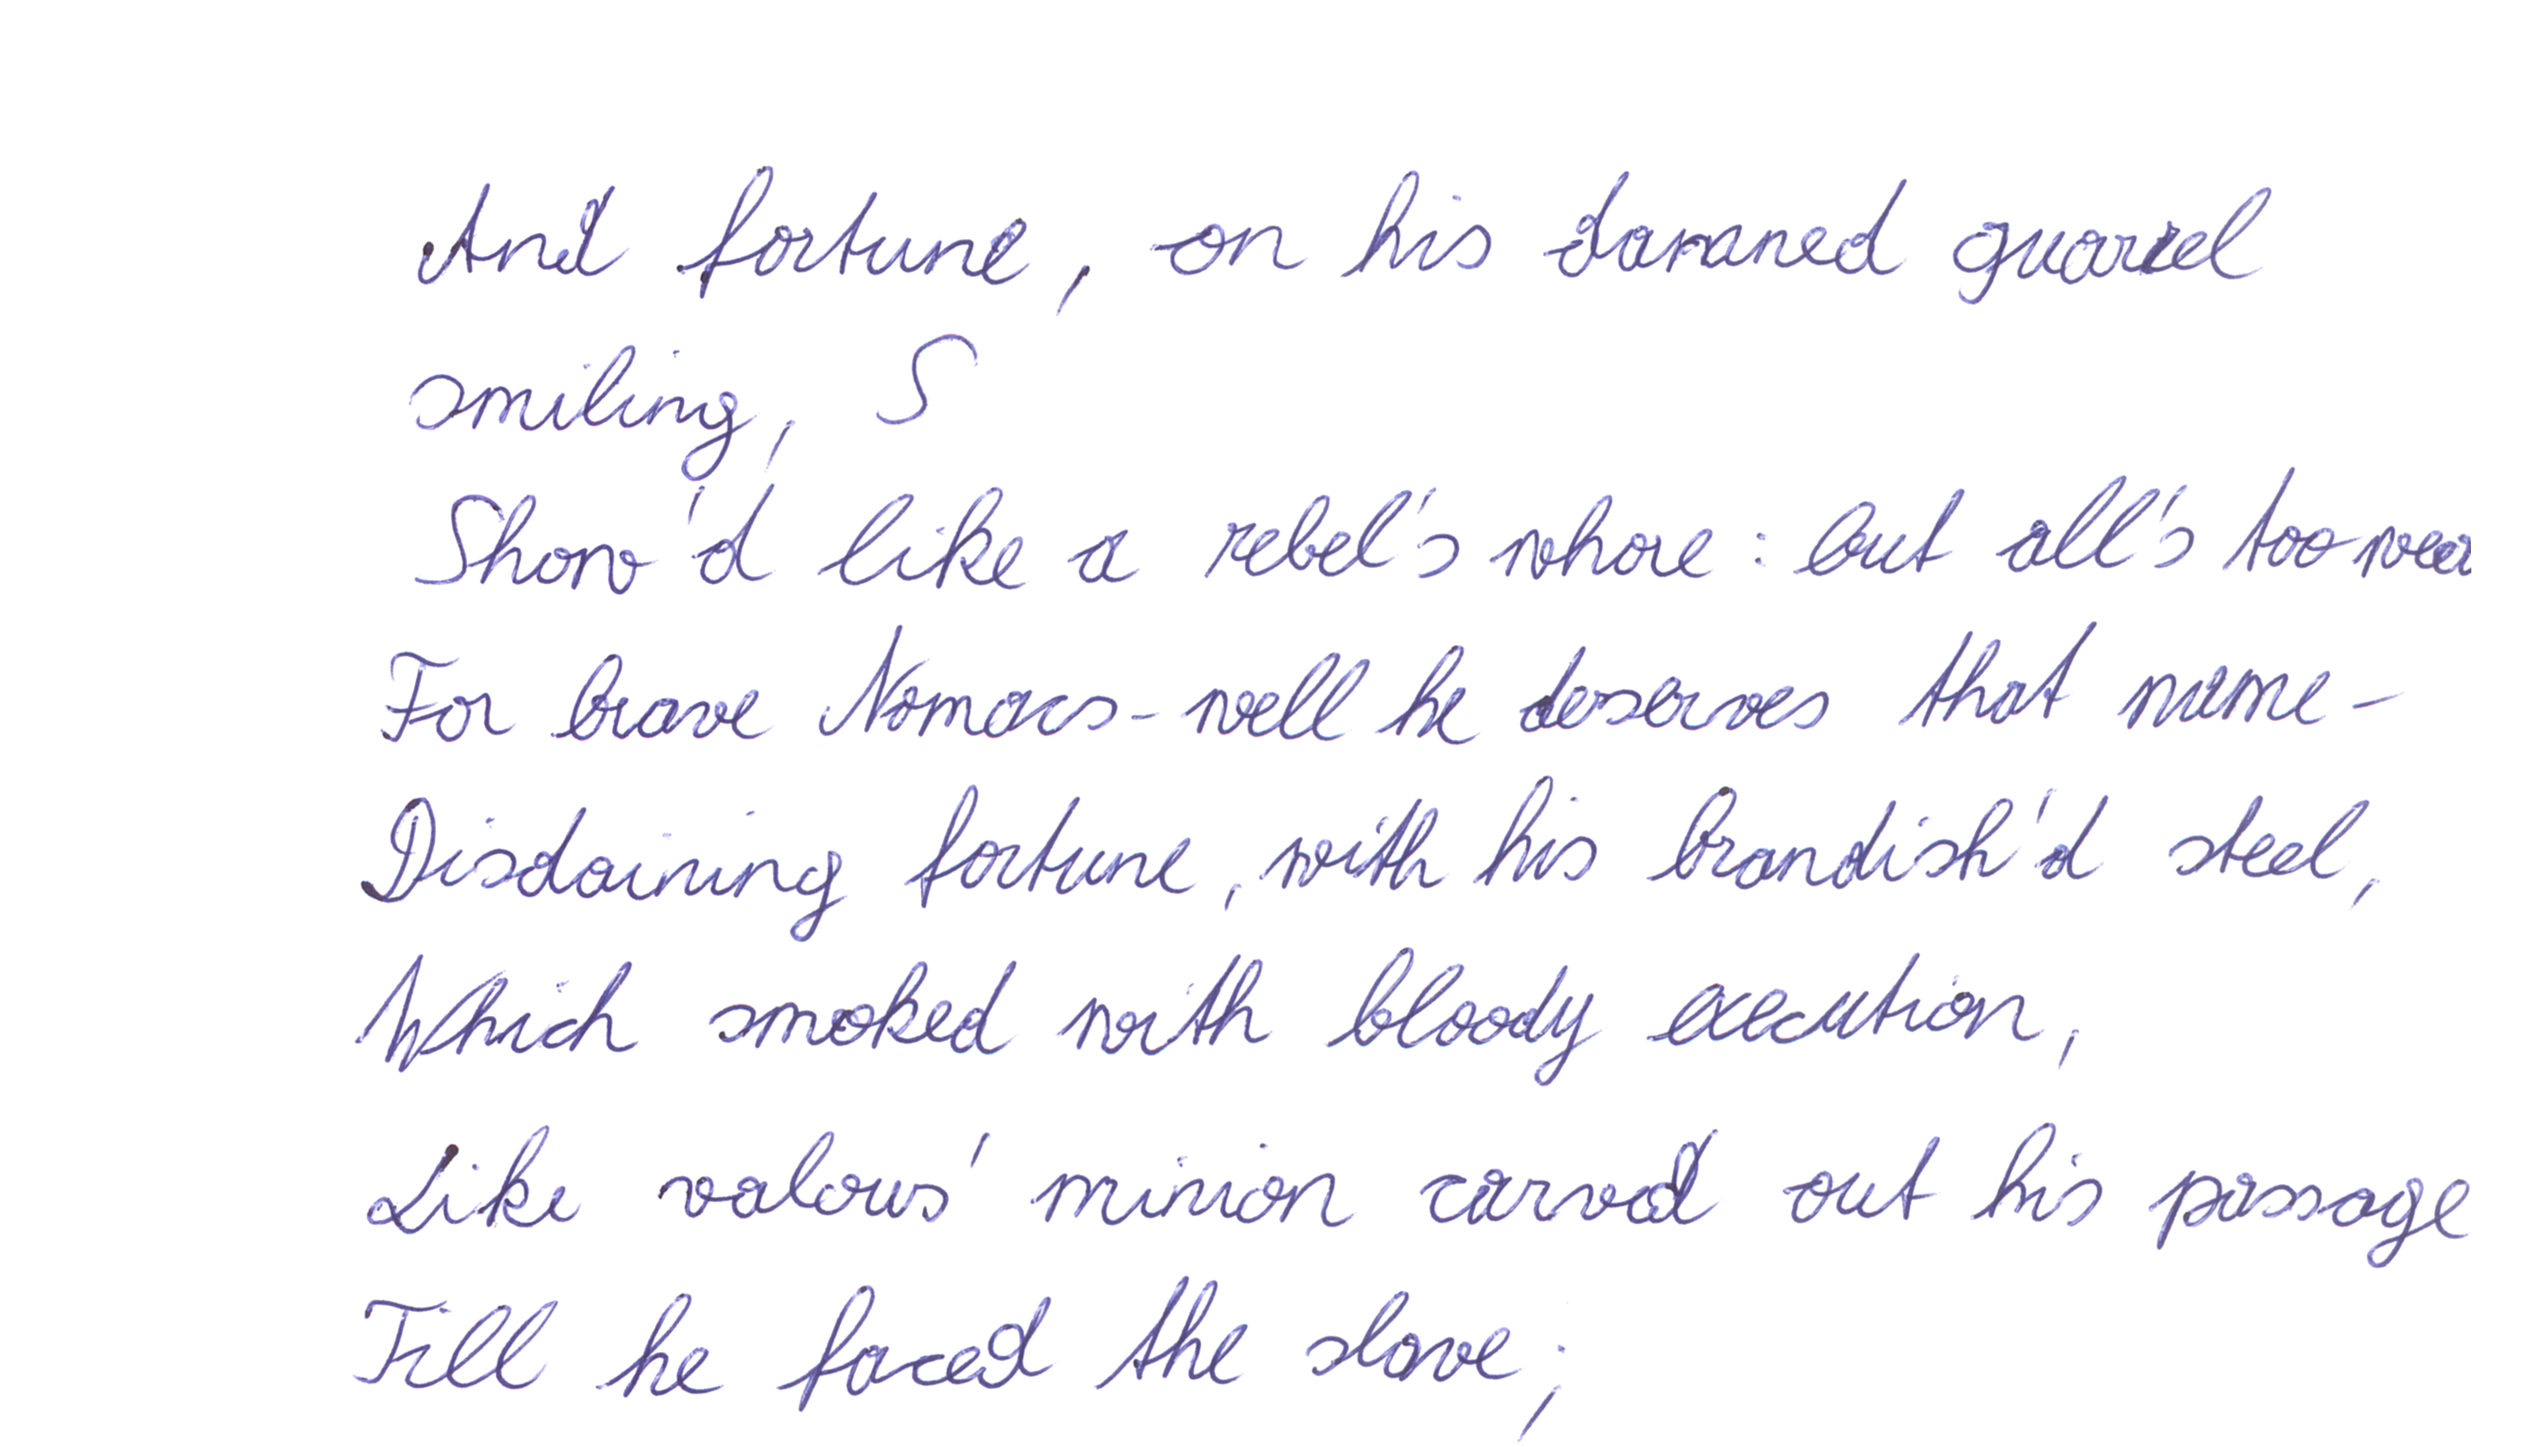 And fortune, on his damned quarrel
smiling, S
Show'd like a rebel's whore: but all's too wea
For brave Nomacs - well he deserves that name -
Disdaining fortune, with his brandish'd steel,
Which smoked with bloody execution,
Like valours' minion carved out his passage
Till he faced the slave;